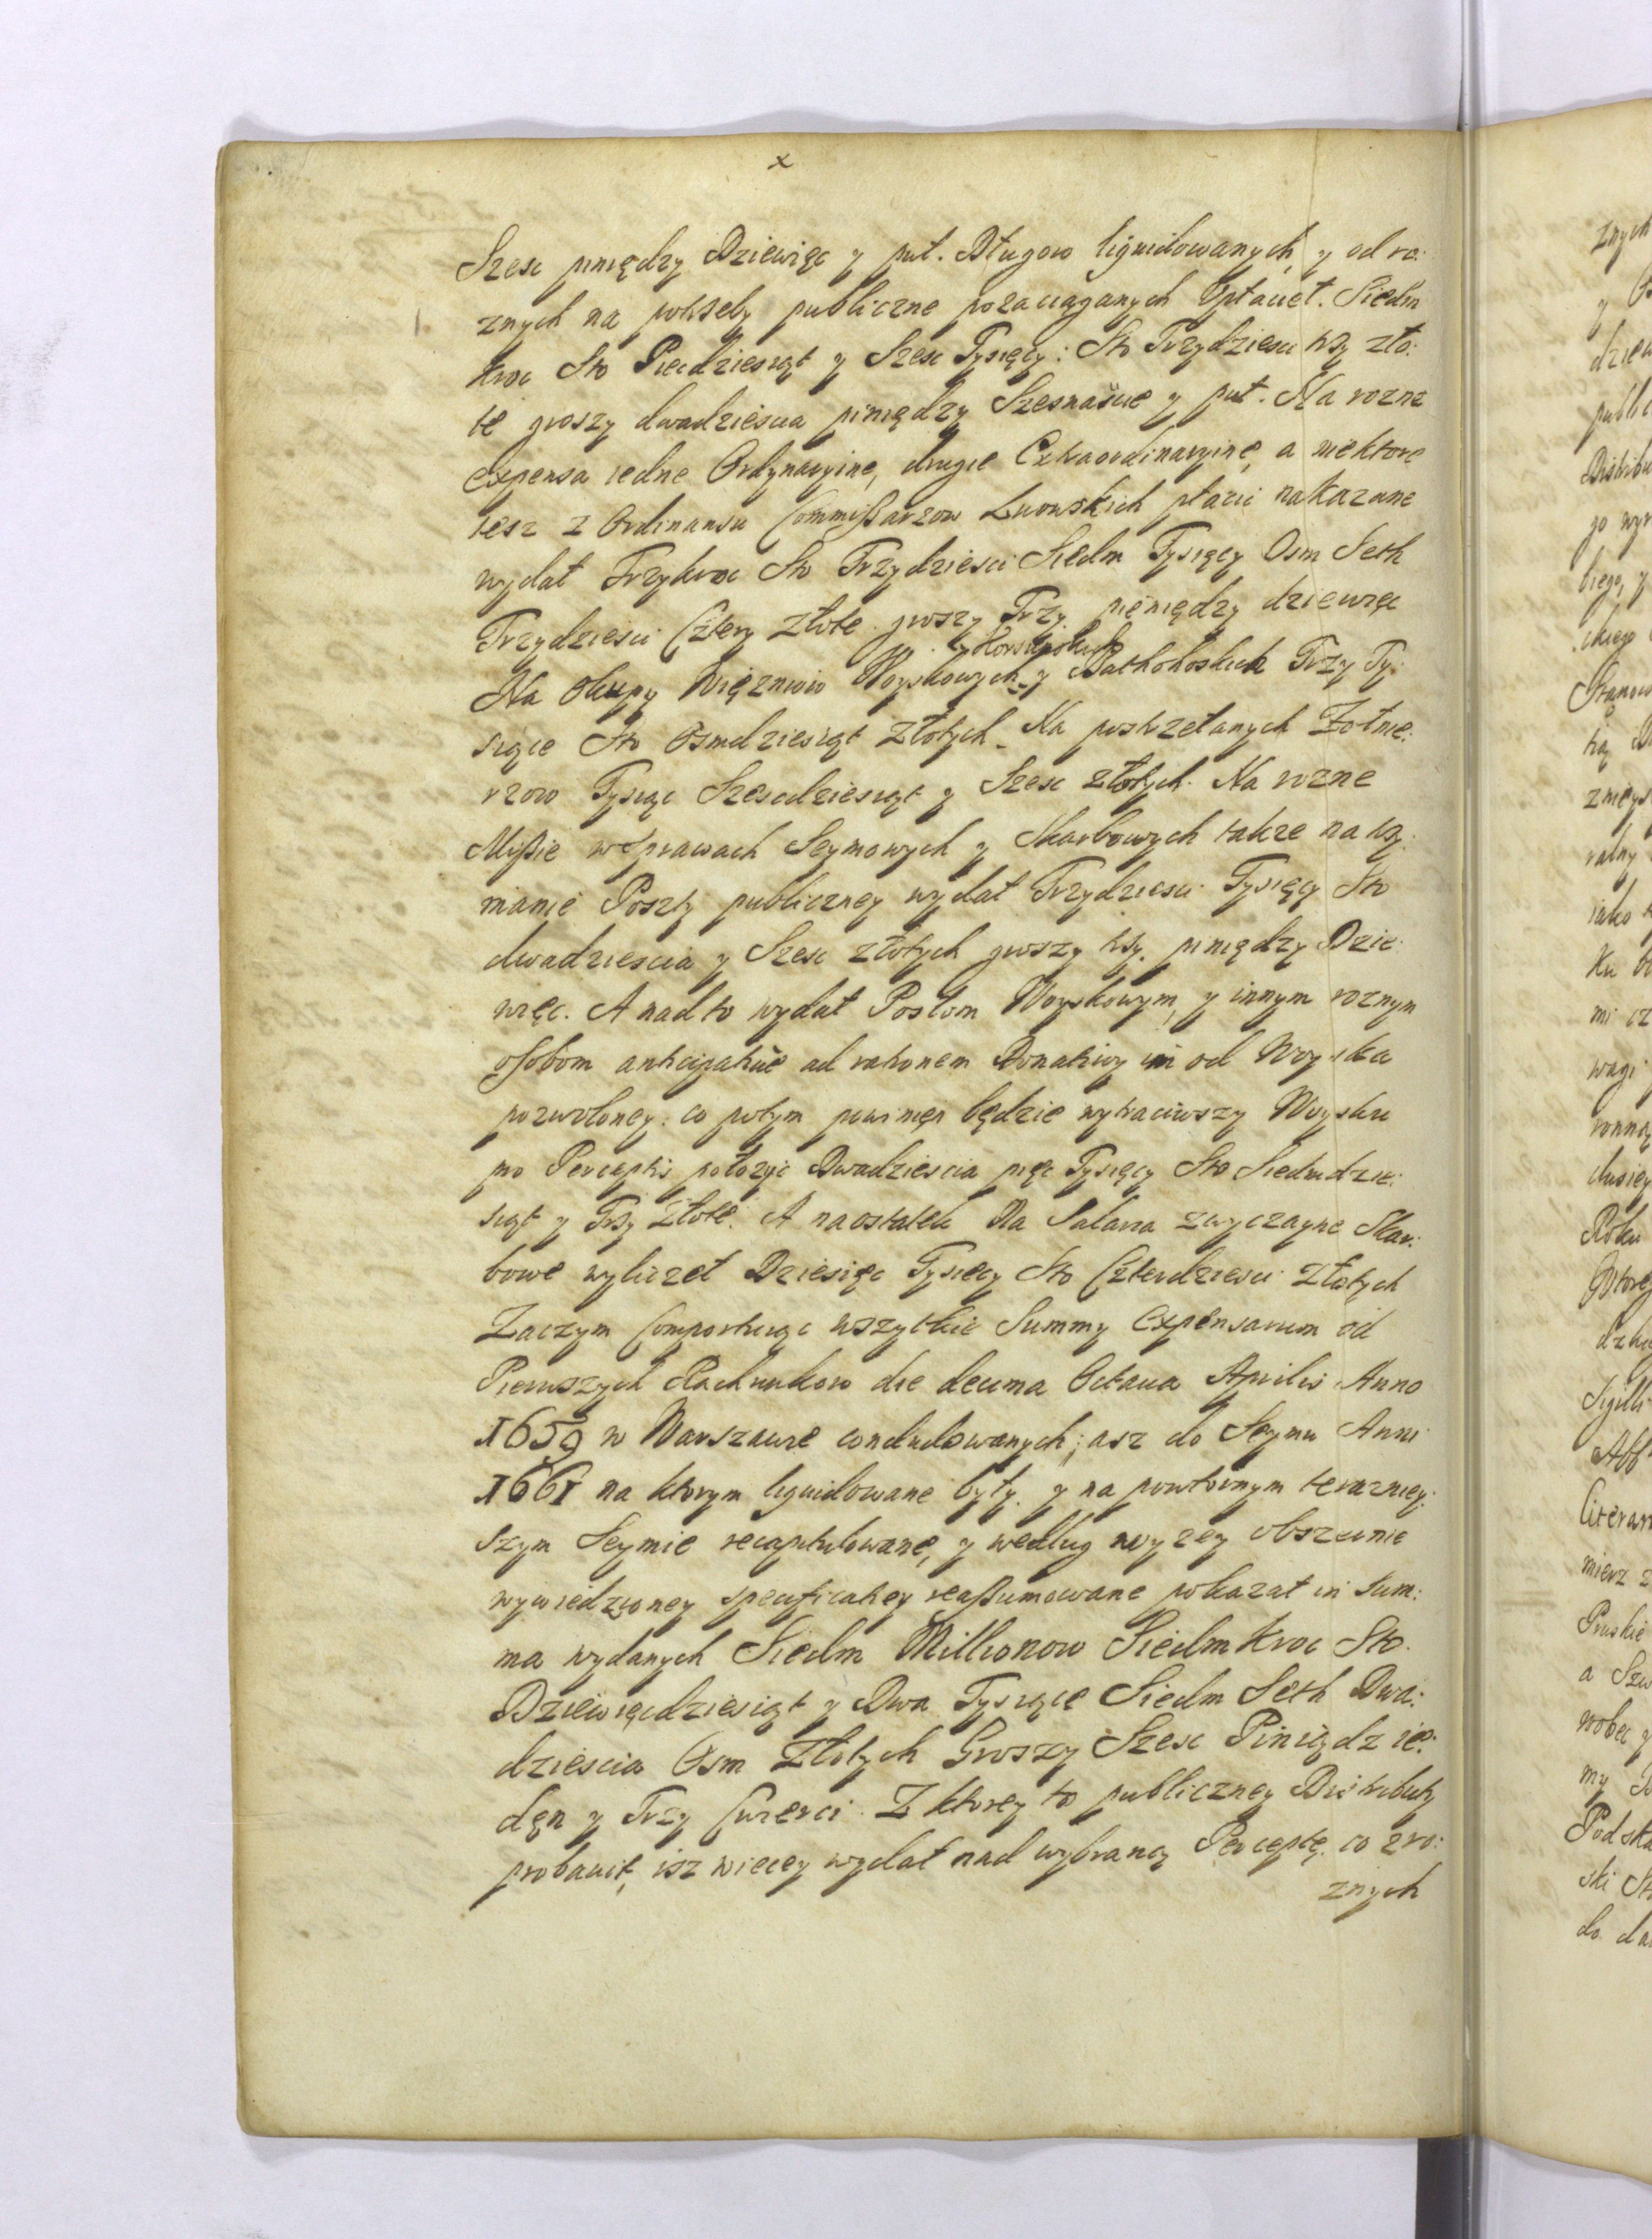 x
Szesc pinędzy Dziewięc y puł. Długow liquidowanych, y od ro:
znych na potrzeby publiczne pozaciąganych Vpłacił. Siedm
kroc Sto Piecdziesiąt y Szesc Tysięcy: Sto Trzydziesci trzy zło:
te groszy dwadziescia pinędzy Szesnascie y puł. Na rozne
expensa iedne Ordynaryine, drugie Extraordinaryine, a niektore
tesz z Ordinansu Commißarzow Lwowskich płacic nakazane
wydał Trzykroc Sto Trzydziesci Siedm Tysięcy Osm Seth
Trzydziesci Cztery złote groszy Trzy pieniędzy dziewięc
Na Okupy Więzniow Woyskowych y Bathohoskich Trzy Ty:
siące Sto Osmdziesiąt złotych. Na postrzelanych Zołnie:
rzow Tysiąc Szescdziesiąt y Szesc złotych. Na rozne
Mißie w Sprawach Seymowych y Skarbowych takze na trzy:
manie Poszty publiczney wydał Trzydziesci Tysięcy Sto
dwadziescia y Szesc złotych groszy trzy. pinędzy Dzie:
więc. A nadto wydał Posłom Woyskowym, y innym roznym
osobom anticipative ad rationem Donatiwy im od Woyska
pozwoloney: co potym powinien będzie wytraciwszy Woysku
pro Perceptis położyc Dwadziescia pięc Tysięcy Sto Siedmdzie:
siąt y Trzy złote. A naostatek Na Salaria zwyczayne Skar:
bowe wyliczył Dziesięc Tysięcy Sto Czterdziesci Złotych
Zaczym Comportuiąc wszytkie Summy Expensarum od
Pierwszych Rachunkow die decima Octava Aprilis Anno
1659 w Warszawie concludowanych; asz do Seymu Anni
1661 na ktorym liquidowane były. y na powtornym terazniey:
szym Seymie recapitulowane, y według wyzey obszernie
wywiedzioney specificatiey reaßumowane pokazał in Sum:
ma wydanych Siedm Millionow Siedm kroc Sto
Dziewięcdziesiąt y Dwa Tysiące Siedm Seth Dwa:
dziescia Osm Złotych Groszy Szesc Piniądz ie:
den y Trzy Cwierci. Z ktorey to publiczney Distributy
probavit, isz wiecey wydał nad wybraną Perceptę. co z ro:
znych